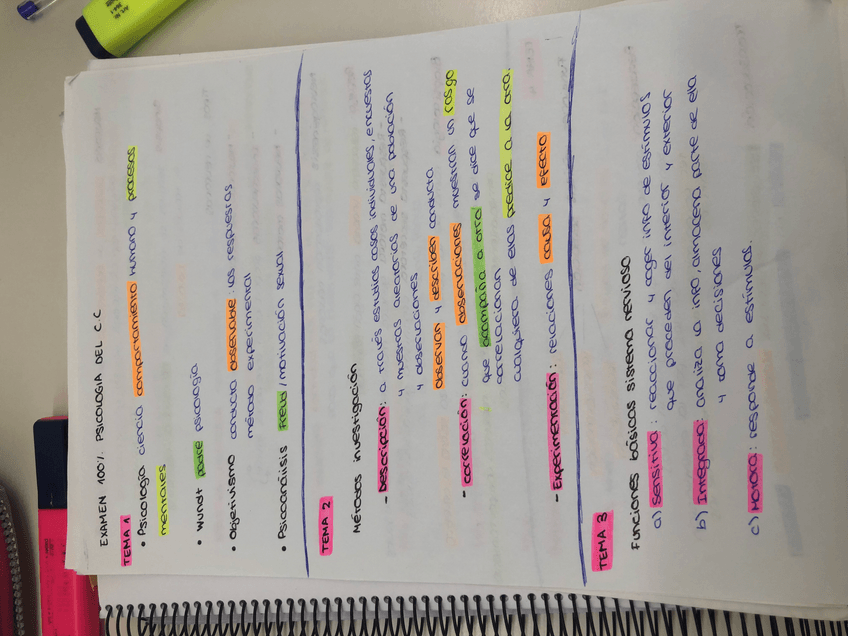 EXAMEN 100% PSICOLOGIA DEL C.C
TEMA 1
• Psicología ciencia comportamiento humano y procesos
mentales
• Wundt padre psicología
• Objetivismo conducta observable: las respuestas
método experimental
• Psicoanálisis Freud / motivación sexual
TEMA 2
Métodos investigación
- Descripción: a través estudios casos individuales, encuestas
y muestras aleatorias de una población
y observaciones
observan y describen conducta
- correlación: cuando observaciones muestran un rasgo
que acompaña a otro se dice que se
correlacionan
cualquiera de ellas predice a la otra.
- Experimentación: relaciones causa y efecto
TEMA 3
Funciones básicas sistema nervioso
a) Sensitiva: reaccionar y coger info de estímulos
que proceden del interior y exterior
b) Integrada: analiza la info, almacena parte de ella
y toma decisiones
c) Motora: responde a estímulos.